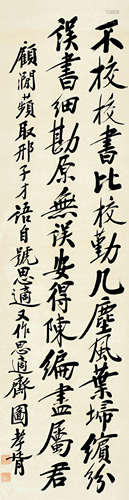 不校校書比校勤几塵風葉埽繽紛
誤書細勘原無誤安得陳編盡屬君
顧澗蘋取邢子才語自號思適又作思適齋圖 孝胥